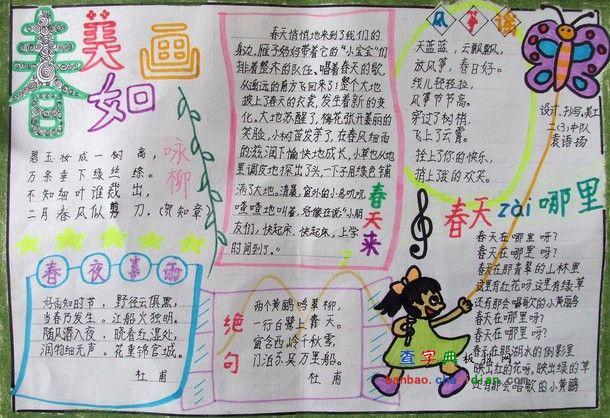 春美如画
咏柳
碧玉妆成一树高，
万条垂下绿丝绦。
不知细叶谁裁出，
二月春风似剪刀。(贺知章)
春夜喜雨
好雨知时节，野径云俱黑，
当春乃发生。江船火独明。
随风潜入夜，晓看红湿处，
润物细无声。花重锦官城。
杜甫
春天悄悄地来到了我们的
身边。雁子妈妈带着它的“小宝宝”们
排着整齐的队伍、唱着春天的歌，
从遥远的南方飞回来了！整个大地
披上了春天的衣裳，发生着新的变
化。大地苏醒了，梅花张开美丽的
笑脸，小树苗发芽了，在春风细雨
的滋润下愉快地成长，小草也从地
里调皮地探出了头，一下子用绿色铺
满了大地。清晨，窗外的小鸟叽叽
喳喳地叫着，好像在说“小朋
友们，快起床，快起床，上学
时间到了。”
春天来
绝句
两个黄鹂鸣翠柳，
一行白鹭上青天。
窗含西岭千秋雪，
门泊东吴万里船。
杜甫
风筝谣
天蓝蓝，云飘飘，
放风筝，春日好。
线儿轻轻拉，
风筝节节高。
穿过了树梢，
飞上了云霄。
拴上了你的快乐，
捎上我的欢笑。
设计、抄写、美工
二(3)中队
袁语扬
春天zài哪里
春天在哪里呀？
春天在哪里呀？
春天在那青翠的山林里
这里有红花呀，这里有绿草
还有那会唱歌的小黄鹂
春天在哪里呀？
春天在哪里呀？
春天在那湖水的倒影里
映出红的花呀，映出绿的草
还有那会唱歌的小黄鹂
查字典 板报网
banbao.chazidian.com